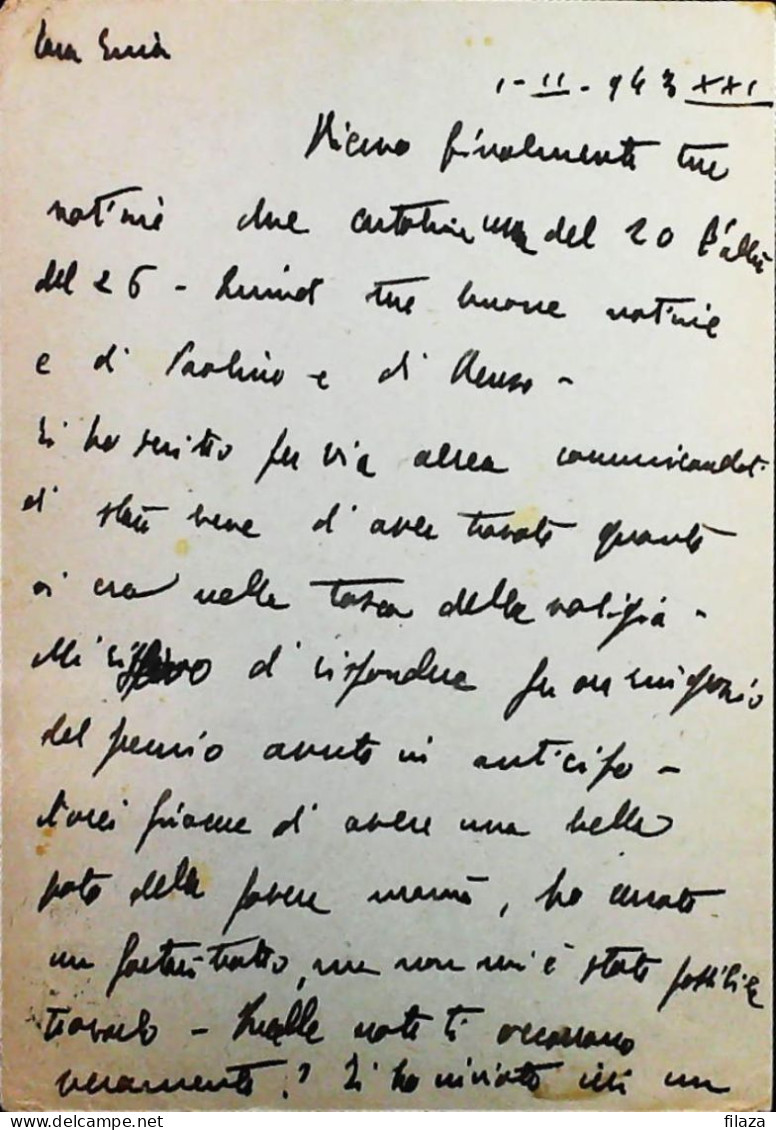 Cara
1-II-943 XXI
Ricevo finalmente tue
notizie due cartoline una del 20 l'altra
del 26 - Quindi tue buone notizie
e di Paolino e di Renzo -
Ti ho scritto per via aerea comunicandoti
di star bene di aver trovato quanto
vi era nella tasca della valigia -
Mi di rispondere per
del premio avuto in anticipo -
Avrei piacere di avere una bella
foto della povera mamma, ho cercato
un ma non mi è stato possibile
trovarlo - Quelle note ti occorrono
veramente? Ti ho inviato ieri un
delcampe.net
filaza